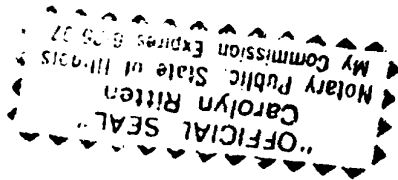 "OFFICIAL SEAL"
Carolyn Ritten
Notary Public, State of Illinois
My Commission Expires